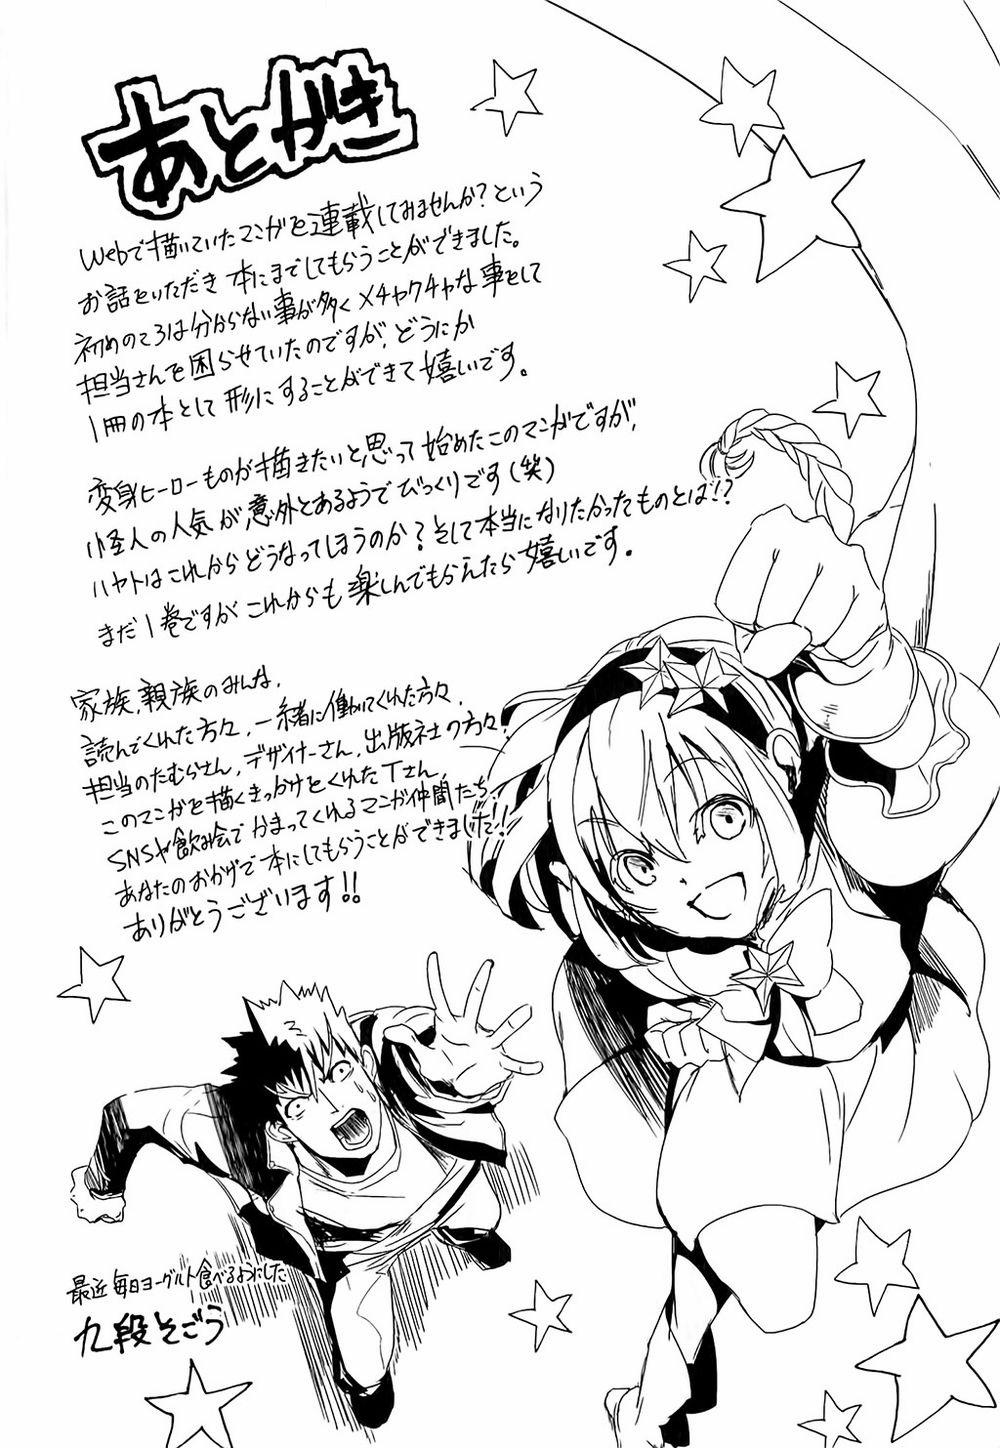 あとがき
Webで描いていたマンガを連載してみませんか?という
お話をいただき本にまでしてもらうことができました。
初めのころは分からない事が多くメチャクチャな事をして
担当さんを困らせていたのですが、どうにか
1冊の本として形にすることができて嬉しいです。
変身ヒーローものが描きたいと思って始めたこのマンガですが、
怪人の人気が意外とあるようでびっくりです(笑)
ハヤトはこれからどうなってしまうのか?そして本当になりたかったものとは!?
まだ1巻ですがこれからも楽しんでもらえたら嬉しいです。
家族、親族のみんな、
読んでくれた方々、一緒に働いてくれた方々、
担当のたむらさん、デザイナーさん、出版社の方々、
このマンガを描くきっかけをくれたTさん、
SNSや飲み会でかまってくれるマンガ仲間たち、
あなたのおかげで本にしてもらうことができました!!
ありがとうございます!!
最近毎日ヨーグルト食べるようにした
九段そごう